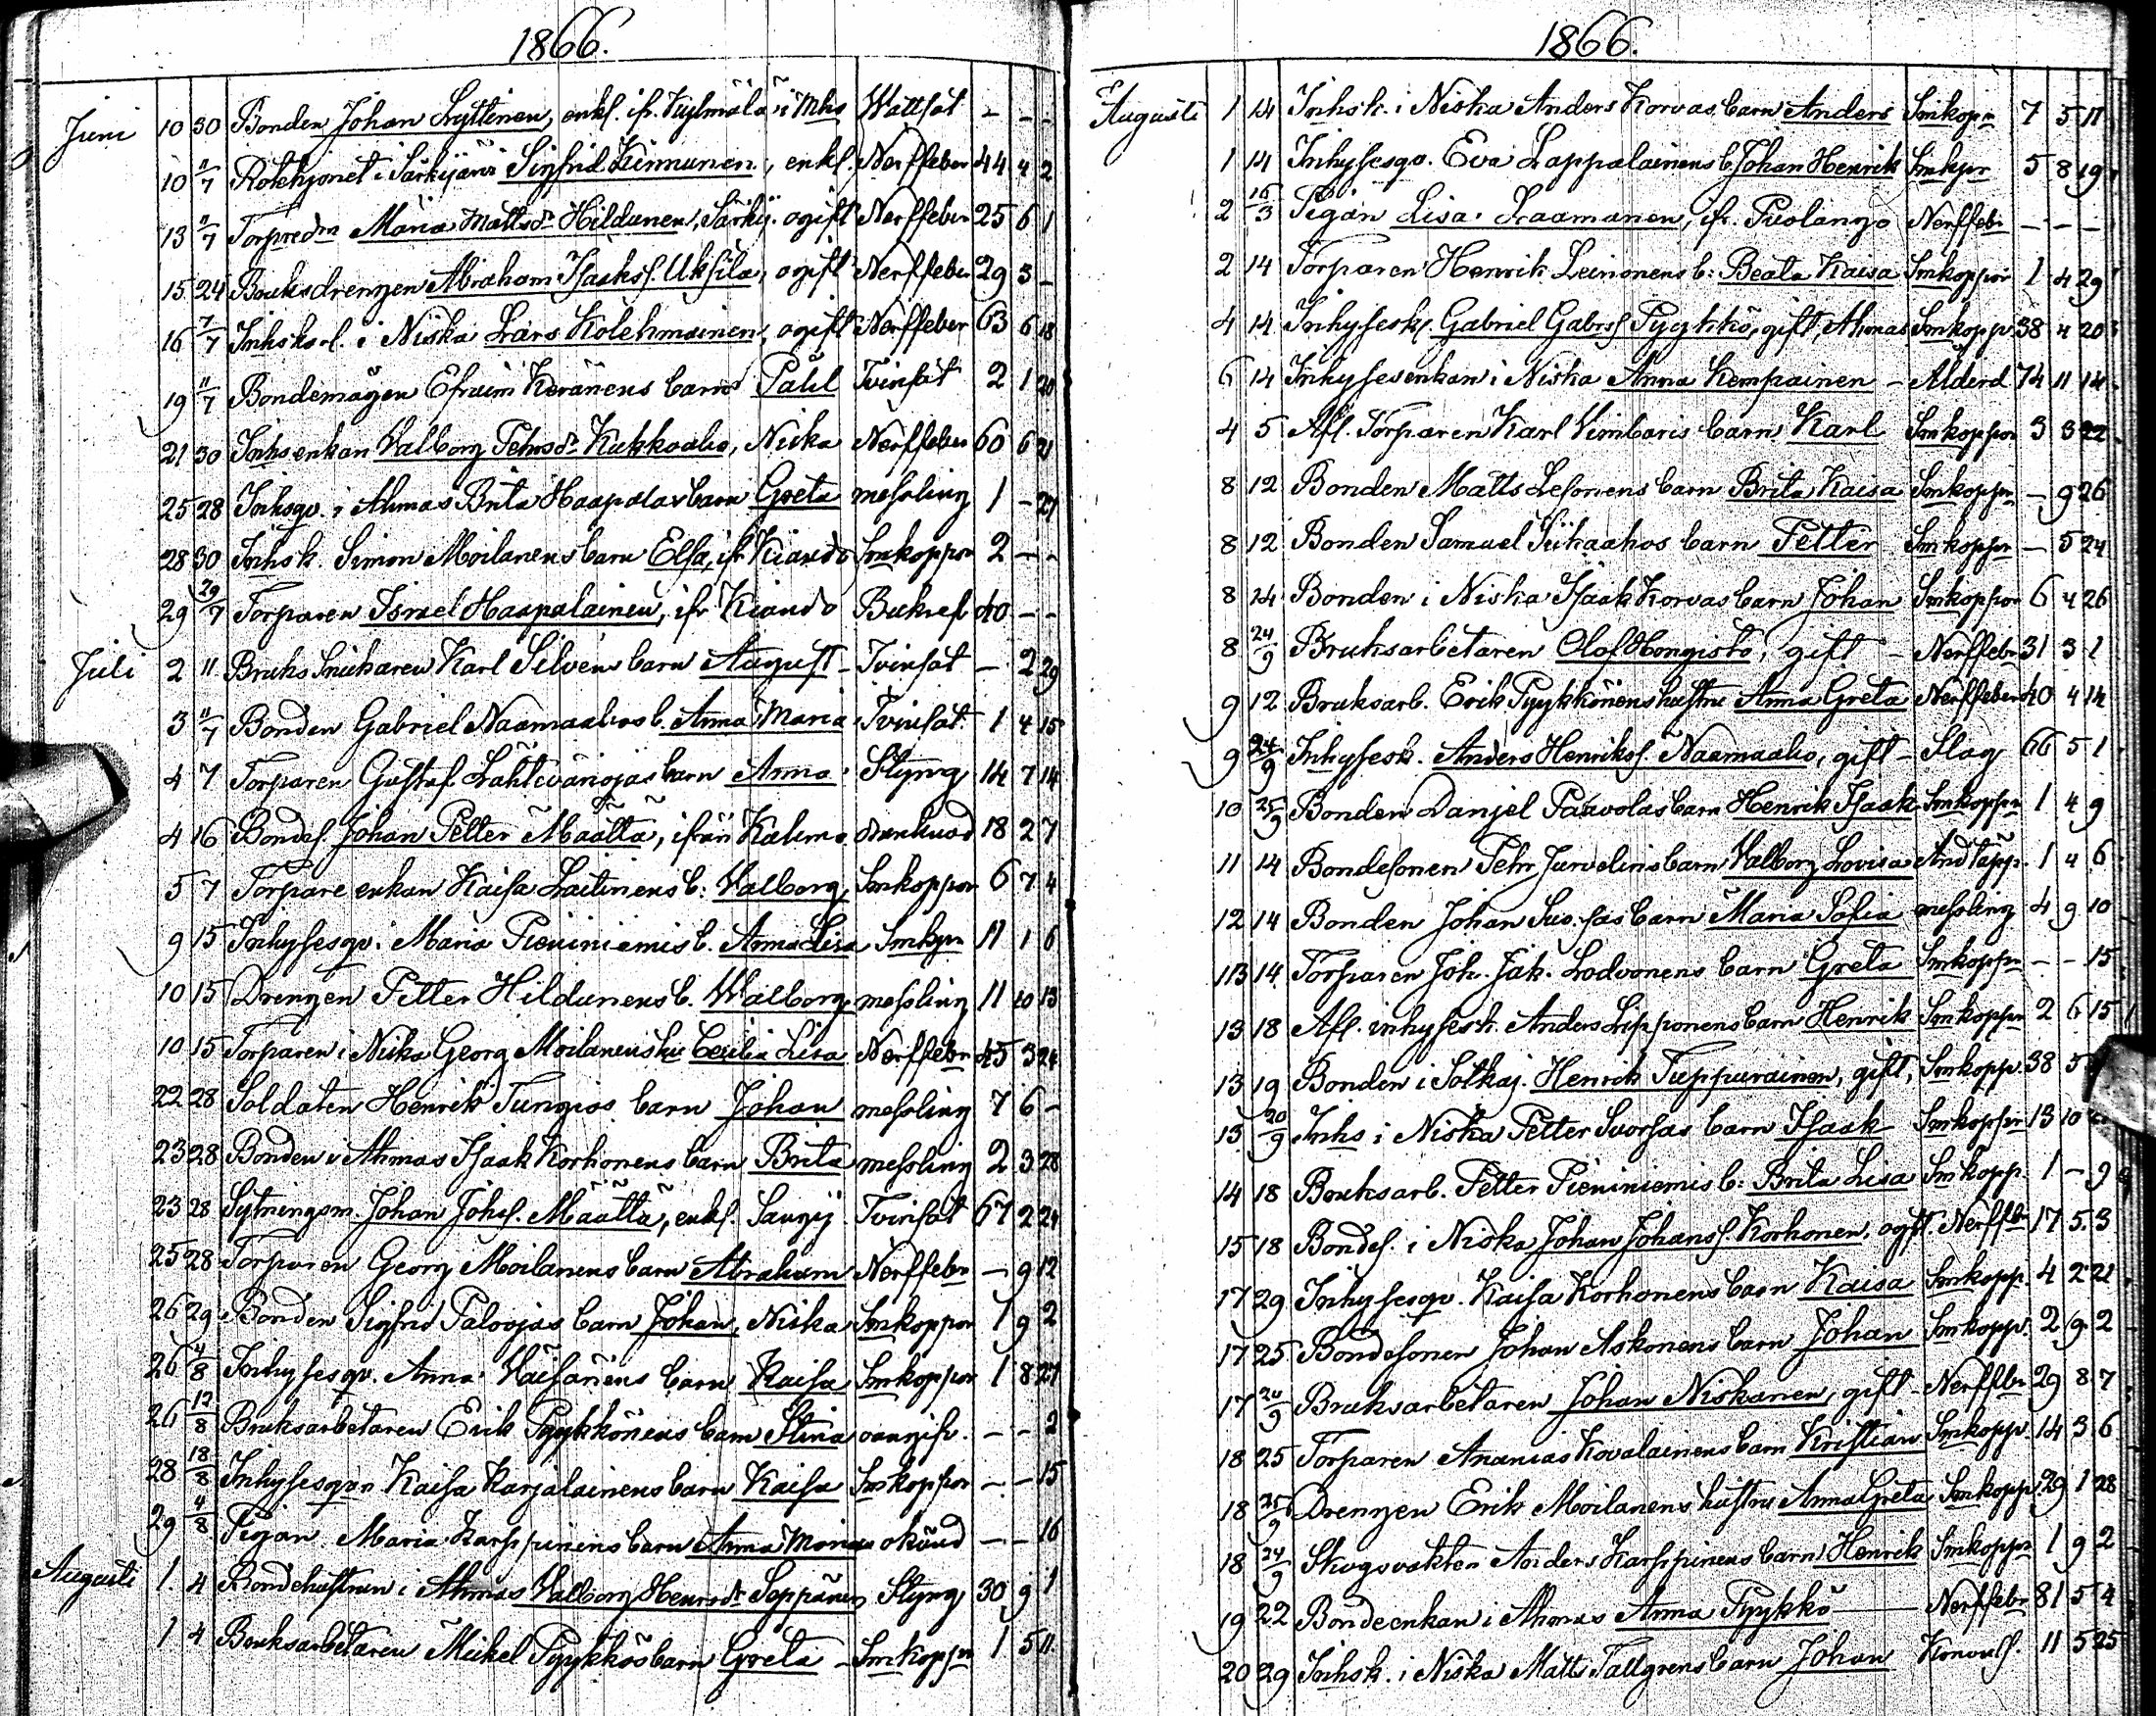 1866.
Juni 10 30 Bonden Johan Lyttinen, enkl. ifr. Kuylmälä i Mhs Wattsot - - -
10 11/7 Rotehjonet i Särkijärvi Sigfrid Kinnunen, enkl. Nerffeber 44 4 2
13 11/7 Torpredn Maria Mattsdr Hildunen, Särkij. ogift Nerffeber 25 6 1
15 24 Bruksdrengen Abraham Isakss. Uksila, ogift Nerffeber 29 3 -
16 7/7 Inhskarl i Niska Lars Kolehmainen, ogift Nerffeber 63 6 18
19 11/7 Bondemågen Efraim Keränens barn Pahl Tvinsot 2 1 20
21 30 Inhsenkan Walborg Pehrsdr Kukkoaho, Niska Nerffeber 60 6 21
25 28 Inhsqv. i Ahmas Brita Haapalas barn Greta messling 1 - 27
28 30 Inhsk. Simon Moilanens barn Elsa, ifr Kiando Smkoppor 2 - -
29 29/7 Torparen Israel Haapalainen, ifr Kiando Bukref 40 - -
Juli 2 11 Bruks Snickaren Karl Silvens barn August - Tvinsot - 2 29
3 11/7 Bonden Gabriel Naamaahos b. Anna Maria Tvinsot 1 4 15
4 7 Torparen Gustaf Lahtevänojas barn Anna Styng 14 7 14
4 16 Bondes. Johan Petter Määttä, ifrån Kalmo drunknad 18 2 7
5 7 Torpare enkan Kaisa Laitinens b: Walborg Smkoppor 6 7 4
9 15 Inhysesqv. Maria Pieniniemis b. Anna Lisa Smkpr 11 1 6
10 15 Drengen Petter Hildunens b. Walborg messling 11 10 13
10 15 Torparen i Niska Georg Moilanens hu Cecilia Lisa Nerffebr 45 3 24
22 28 Soldaten Henrik Tungios barn Johan messling 7 6 -
23 28 Bonden i Ahmas Isaak Korhonens barn Brita messling 2 3 28
23 28 Sytningsm. Johan Johss. Määttä, enkl. Saugij. Tvinsot 67 2 24
25 28 Torparen Georg Moilanens barn Abraham Nerffebr - 9 12
26 29 Bonden Sigfrid Palovjas barn Johan, Niska Smkoppor 1 9 2
26 4/8 Inhysesqv. Anna Väisänens barn Kaisa Smkoppor 1 8 27
26 12/8 Bruksarbetaren Erik Pyykkönens barn Stina oangifv. - - 2
28 18/8 Inhysesqvn Kaisa Karjalainens barn Kaisa Smkoppor - - 15
29 4/8 Pigan Maria Karppinens barn Anna Maria okänd - - 16
Augusti 1 4 Bondehustrun i Ahmas Walborg Henrsdr Seppänen Styng 30 9 1
1 4 Bruksarbetaren Mickel Pyykkös barn Greta - Smkoppr 1 5 11
1866.
Augusti 1 14 Inhsk. i Niska Anders Korvas barn Anders Smkopr 7 5 11
1 14 Inhysesqv. Eva Lappalainens b. Johan Henrik Smkpr 5 8 19
2 16/3 Pigan Lisa Laamanen, ifr. Puolango Nerffebr - - -
2 14 Torparen Henrik Leinonens b: Beata Kaisa Smkoppor 1 4 29
4 14 Inhysesk. Gabriel Gabrs. Pyykkö, gift, Ahmas Smkopp. 38 4 20
6 14 Inhysesenkan i Niska Anna Kempainen - Alderd. 74 11 14
4 5 Afl. Torparen Karl Vimbaris barn Karl Smkoppor 3 3 22
8 12 Bonden Matts Lesonens barn Brita Kaisa Smkoppr - 9 26
8 12 Bonden Samuel Siikaahos barn Petter Smkoppr - 5 24
8 14 Bonden i Niska Isaak Korvas barn Johan Smkoppor 6 4 26
8 24/9 Bruksarbetaren Olof Hongisto, gift - Nerffebr 31 3 1
9 12 Bruksarb. Erik Pyykkönens hustru Anna Greta Nerffeber 40 4 14
9 24/9 Inhysesk. Anders Henrikss. Naamaaho, gift - Slag 66 5 1
10 25/9 Bonden Danjel Paavolas barn Henrik Isaak Smkoppr 1 4 9
11 14 Bondesonen Pehr Jurvelins barn Walborg Lovisa Andtäpp. 1 4 6
12 14 Bonden Johan Suo.sas barn Maria Sofia messling 4 9 10
13 14 Torparen Joh. Jak. Lodvonens barn Greta Smkoppr - - 15
13 18 Afl. inhysesk. Anders Lipponens barn Henrik Smkoppr 2 6 15
13 19 Bonden i Sotkaj. Henrik Tuppurainen, gift, Smkopp. 38 5
13 20/9 Inhs i Niska Petter Suorsas barn Isaak Smkoppr 13 10
14 18 Bruksarb. Petter Pieniniemis b: Brita Lisa Smkopp. 1 - 9
15 18 Bondes. i Niska Johan Johanss. Korhonen, ogft. Nerffbr 17 5 3
17 29 Inhysesqv. Kaisa Korhonens barn Kaisa Smkopp. 4 2 21
17 25 Bondesonen Johan Askonens barn Johan Smkopp. 2 9 2
17 24/9 Bruksarbetaren Johan Niskanen, gift - Nerffbr 29 8 7
18 25 Torparen Ananias Kovalainens barn Kristian Smkopp. 14 3 6
18 25/9 Drengen Erik Moilanens hustru Anna Greta Smkopp. 29 1 28
18 24/9 Skogsvakten Anders Karppinens barn Henrik Smkoppr 1 9 2
19 22 Bondeenkan i Ahmas Anna Pyykkö Nerffebr 81 5 4
20 29 Inhsk. i Niska Matts Tallgrens barn Johan Konvuls. 11 5 25